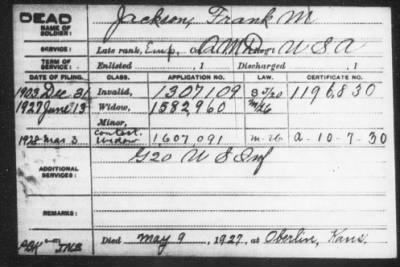 DEAD
NAME OF SOLDIER: Jackson, Frank M
SERVICE: Late rank, Emp, A M D U S A
TERM OF SERVICE: Enlisted , 1 Discharged , 1
DATE OF FILING. CLASS. APPLICATION NO. LAW. CERTIFICATE NO.
1903 Dec 31 Invalid, 1307109 1196830
1927 June 13 Widow, 1582,960
Minor,
1928 Mar. 3 Contest. Widow 1,607,091 a-10-7-30
ADDITIONAL SERVICES: G 20 U S Inf
REMARKS:
Died May 9, 1927, at Oberlin, Kans.